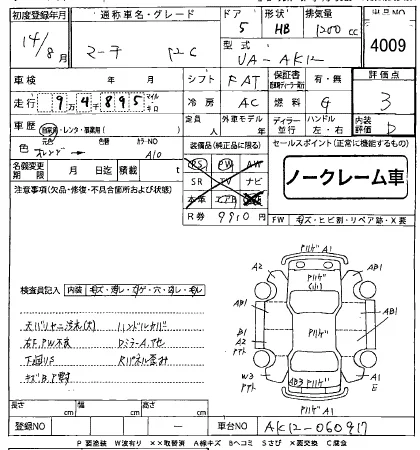 初度登録年月 通称車名・グレード ドア 形状 排気量 出品NO
14/8月 マーチ 12C 5 HB 1200 cc 4009
型式 UA-AK12
車検 年 月 シフト FAT 保証書 有・無 評価点
走行 9万4千895 マイル キロ 冷房 AC 燃料 G 3
車歴 自家用・レンタ・事業用 定員 人 外車モデル 年 ディーラー 並行 ハンドル 左・右 内装評価 D
色 元色 オレンジ 色替 カラーNO A10 装備品(純正品に限る) セールスポイント(正常に機能するもの)
PS PW AW
名義変更期限 月 日迄 積載 t SR TV ナビ ノークレーム車
注意事項(欠品・修復・不具合箇所および状態) 本革 エアB
R券 9910 円 FW キズ・ヒビ割・リペア跡・X要
検査員記入 内装 キズ・汚レ・コゲ・穴・スレ・モレ
大バリヤニ汚れ(大) ハンドルケバ
右F.PW不良 DミラーA.サビ
下廻りS Rパネル歪み
キズB.P有
A1 A2 AB1 A1 B1 A2 AB1 W3 AB3 A1 E A1
長さ cm 幅 cm 高さ cm
登録NO - 車台NO AK12-060917
P要塗装 W波有り ××取替済 A線キズ Bヘコミ Sさび ×要交換 C腐食